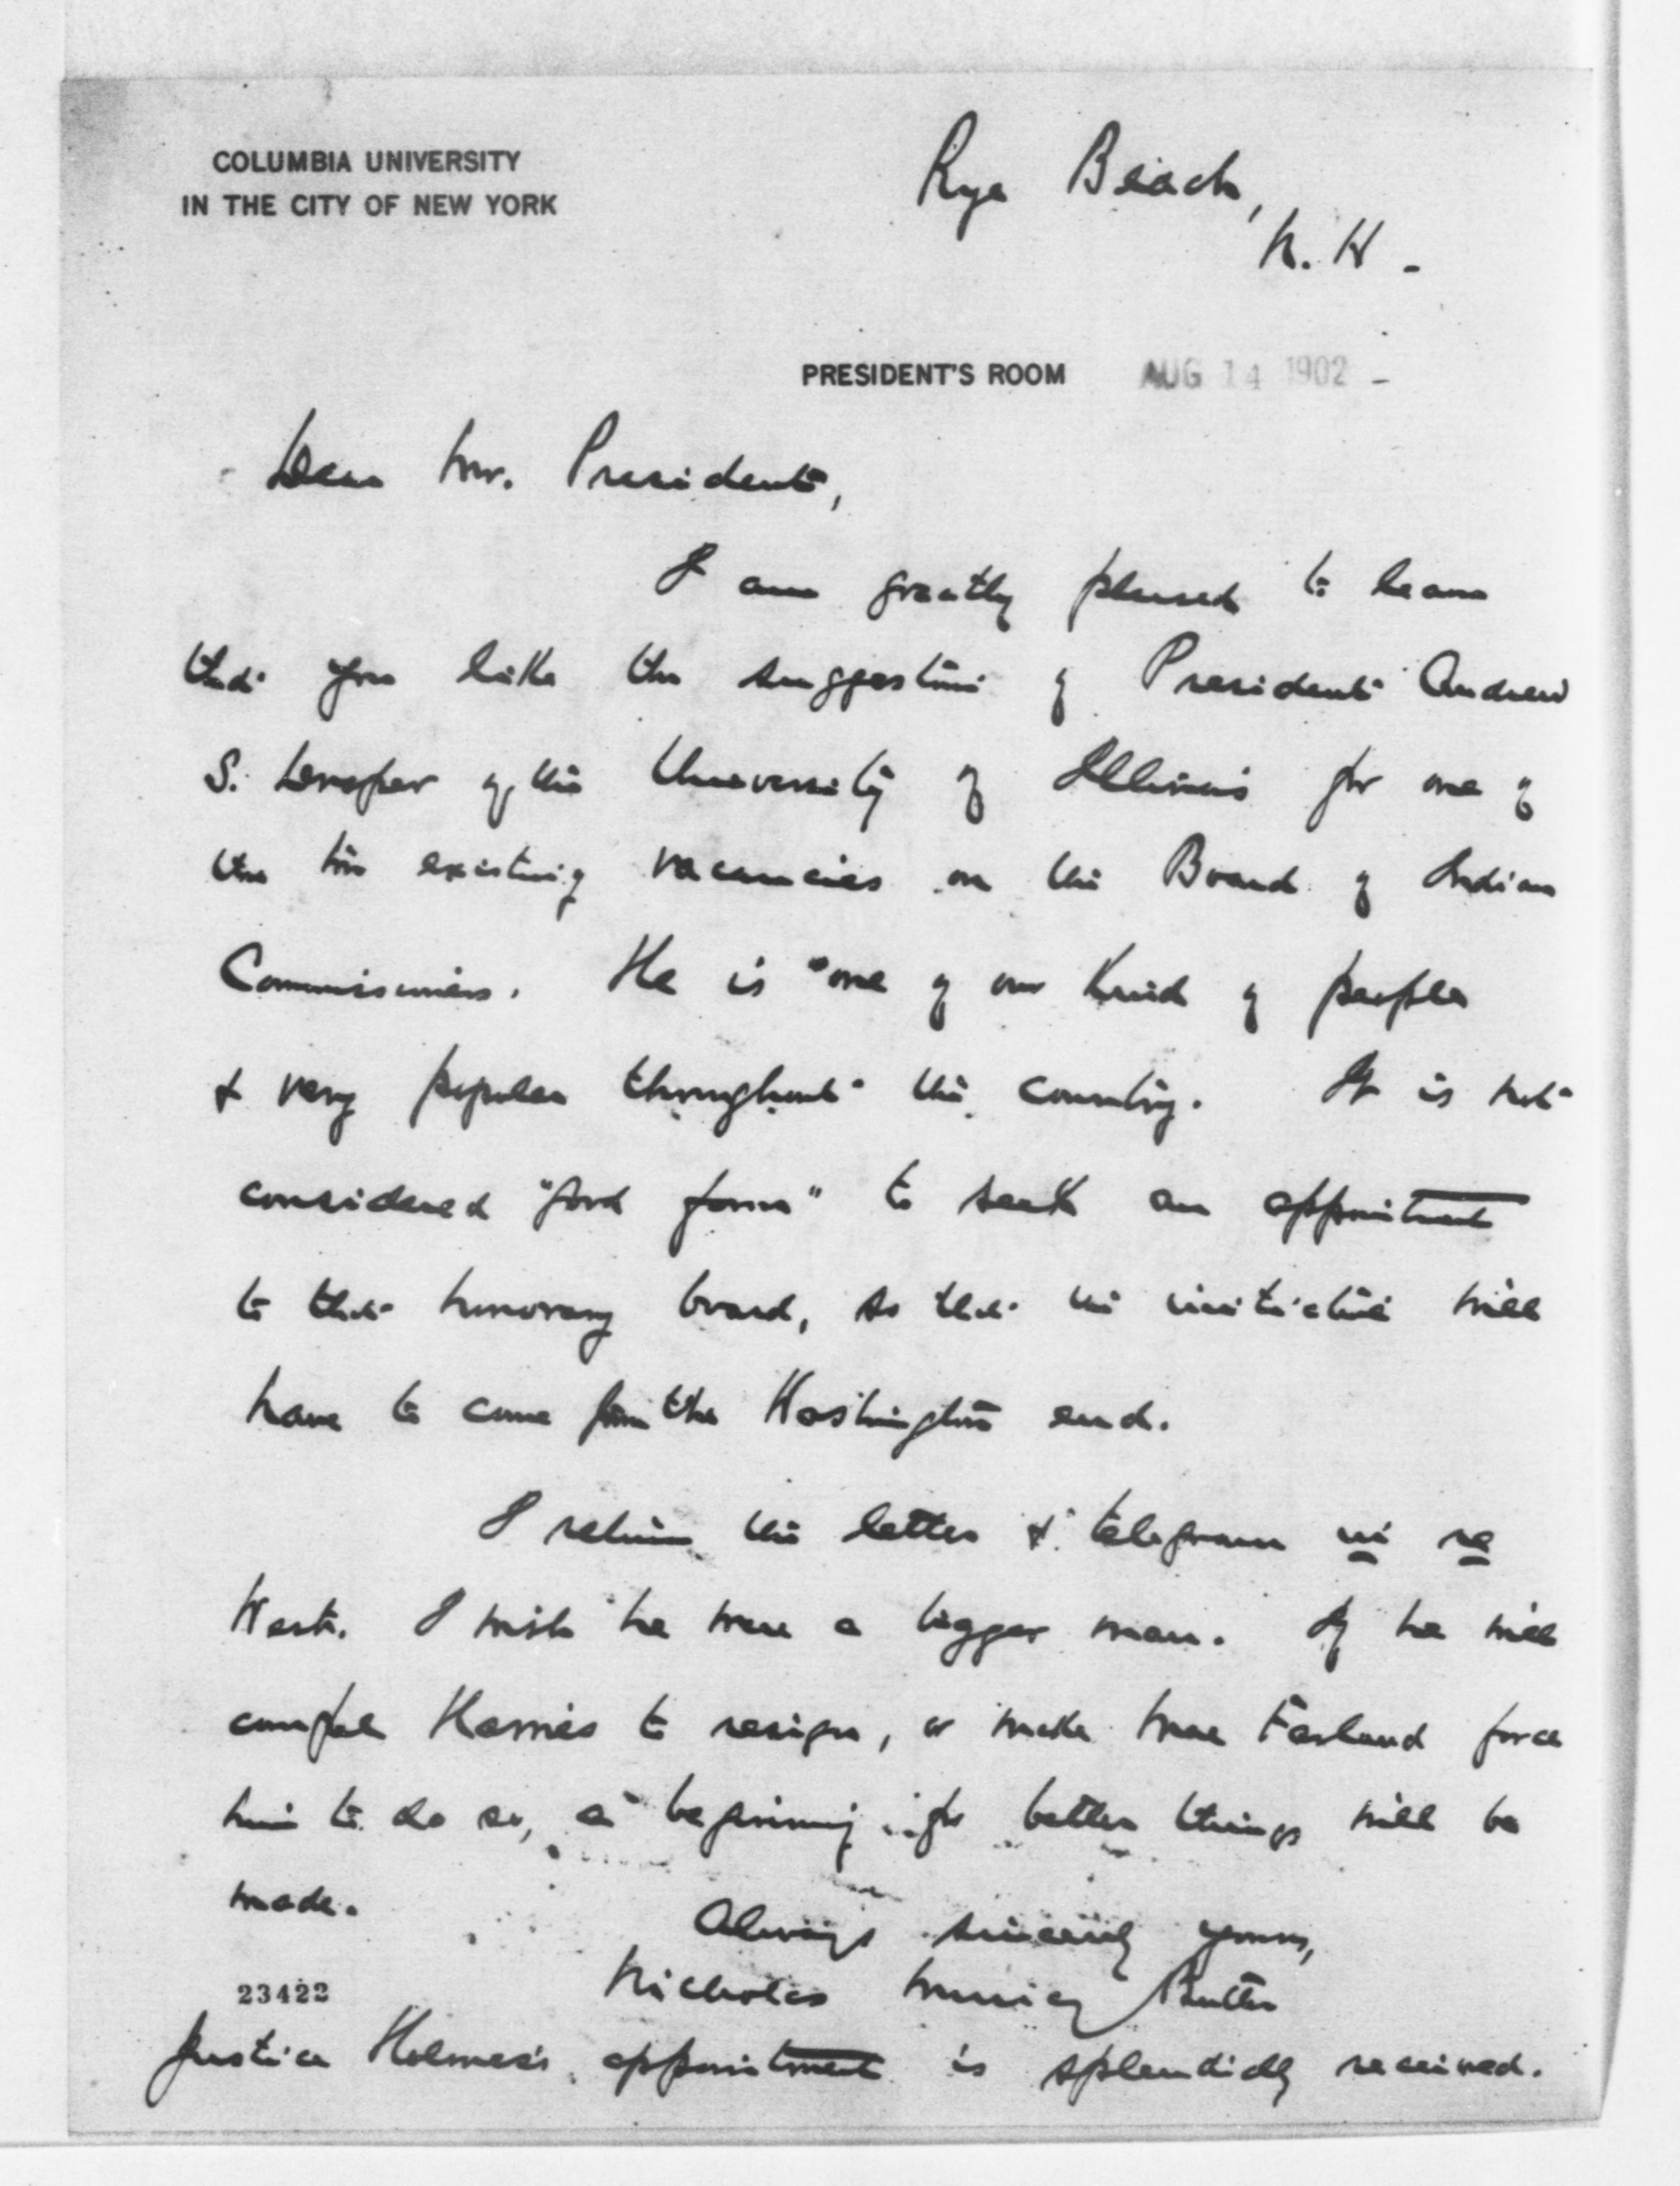 COLUMBIA UNIVERSITY
IN THE CITY OF NEW YORK
Rye Beach,
N. H -
PRESIDENT'S ROOM AUG 14 1902 -
Dear Mr. President,
I am greatly pleased to learn
that you like the suggestion of President Andrew
S. Draper of the University of Illinois for one of
the two existing vacancies on the Board of Indian
Commissioners. He is "one of our kind of people
& very popular throughout the country. It is not
considered "good form" to seek an appointment
to that honorary board, so that the initiative will
have to come from the Washington end.
I return the letter & telegram in re
West. I wish he were a bigger man. If he will
compel Harris to resign, or make MacFarland force
him to do so, a beginning for better things will be
made.
Always sincerely yours,
Nicholas Murray Butler
23422
Justice Holmes's appointment is splendidly received.